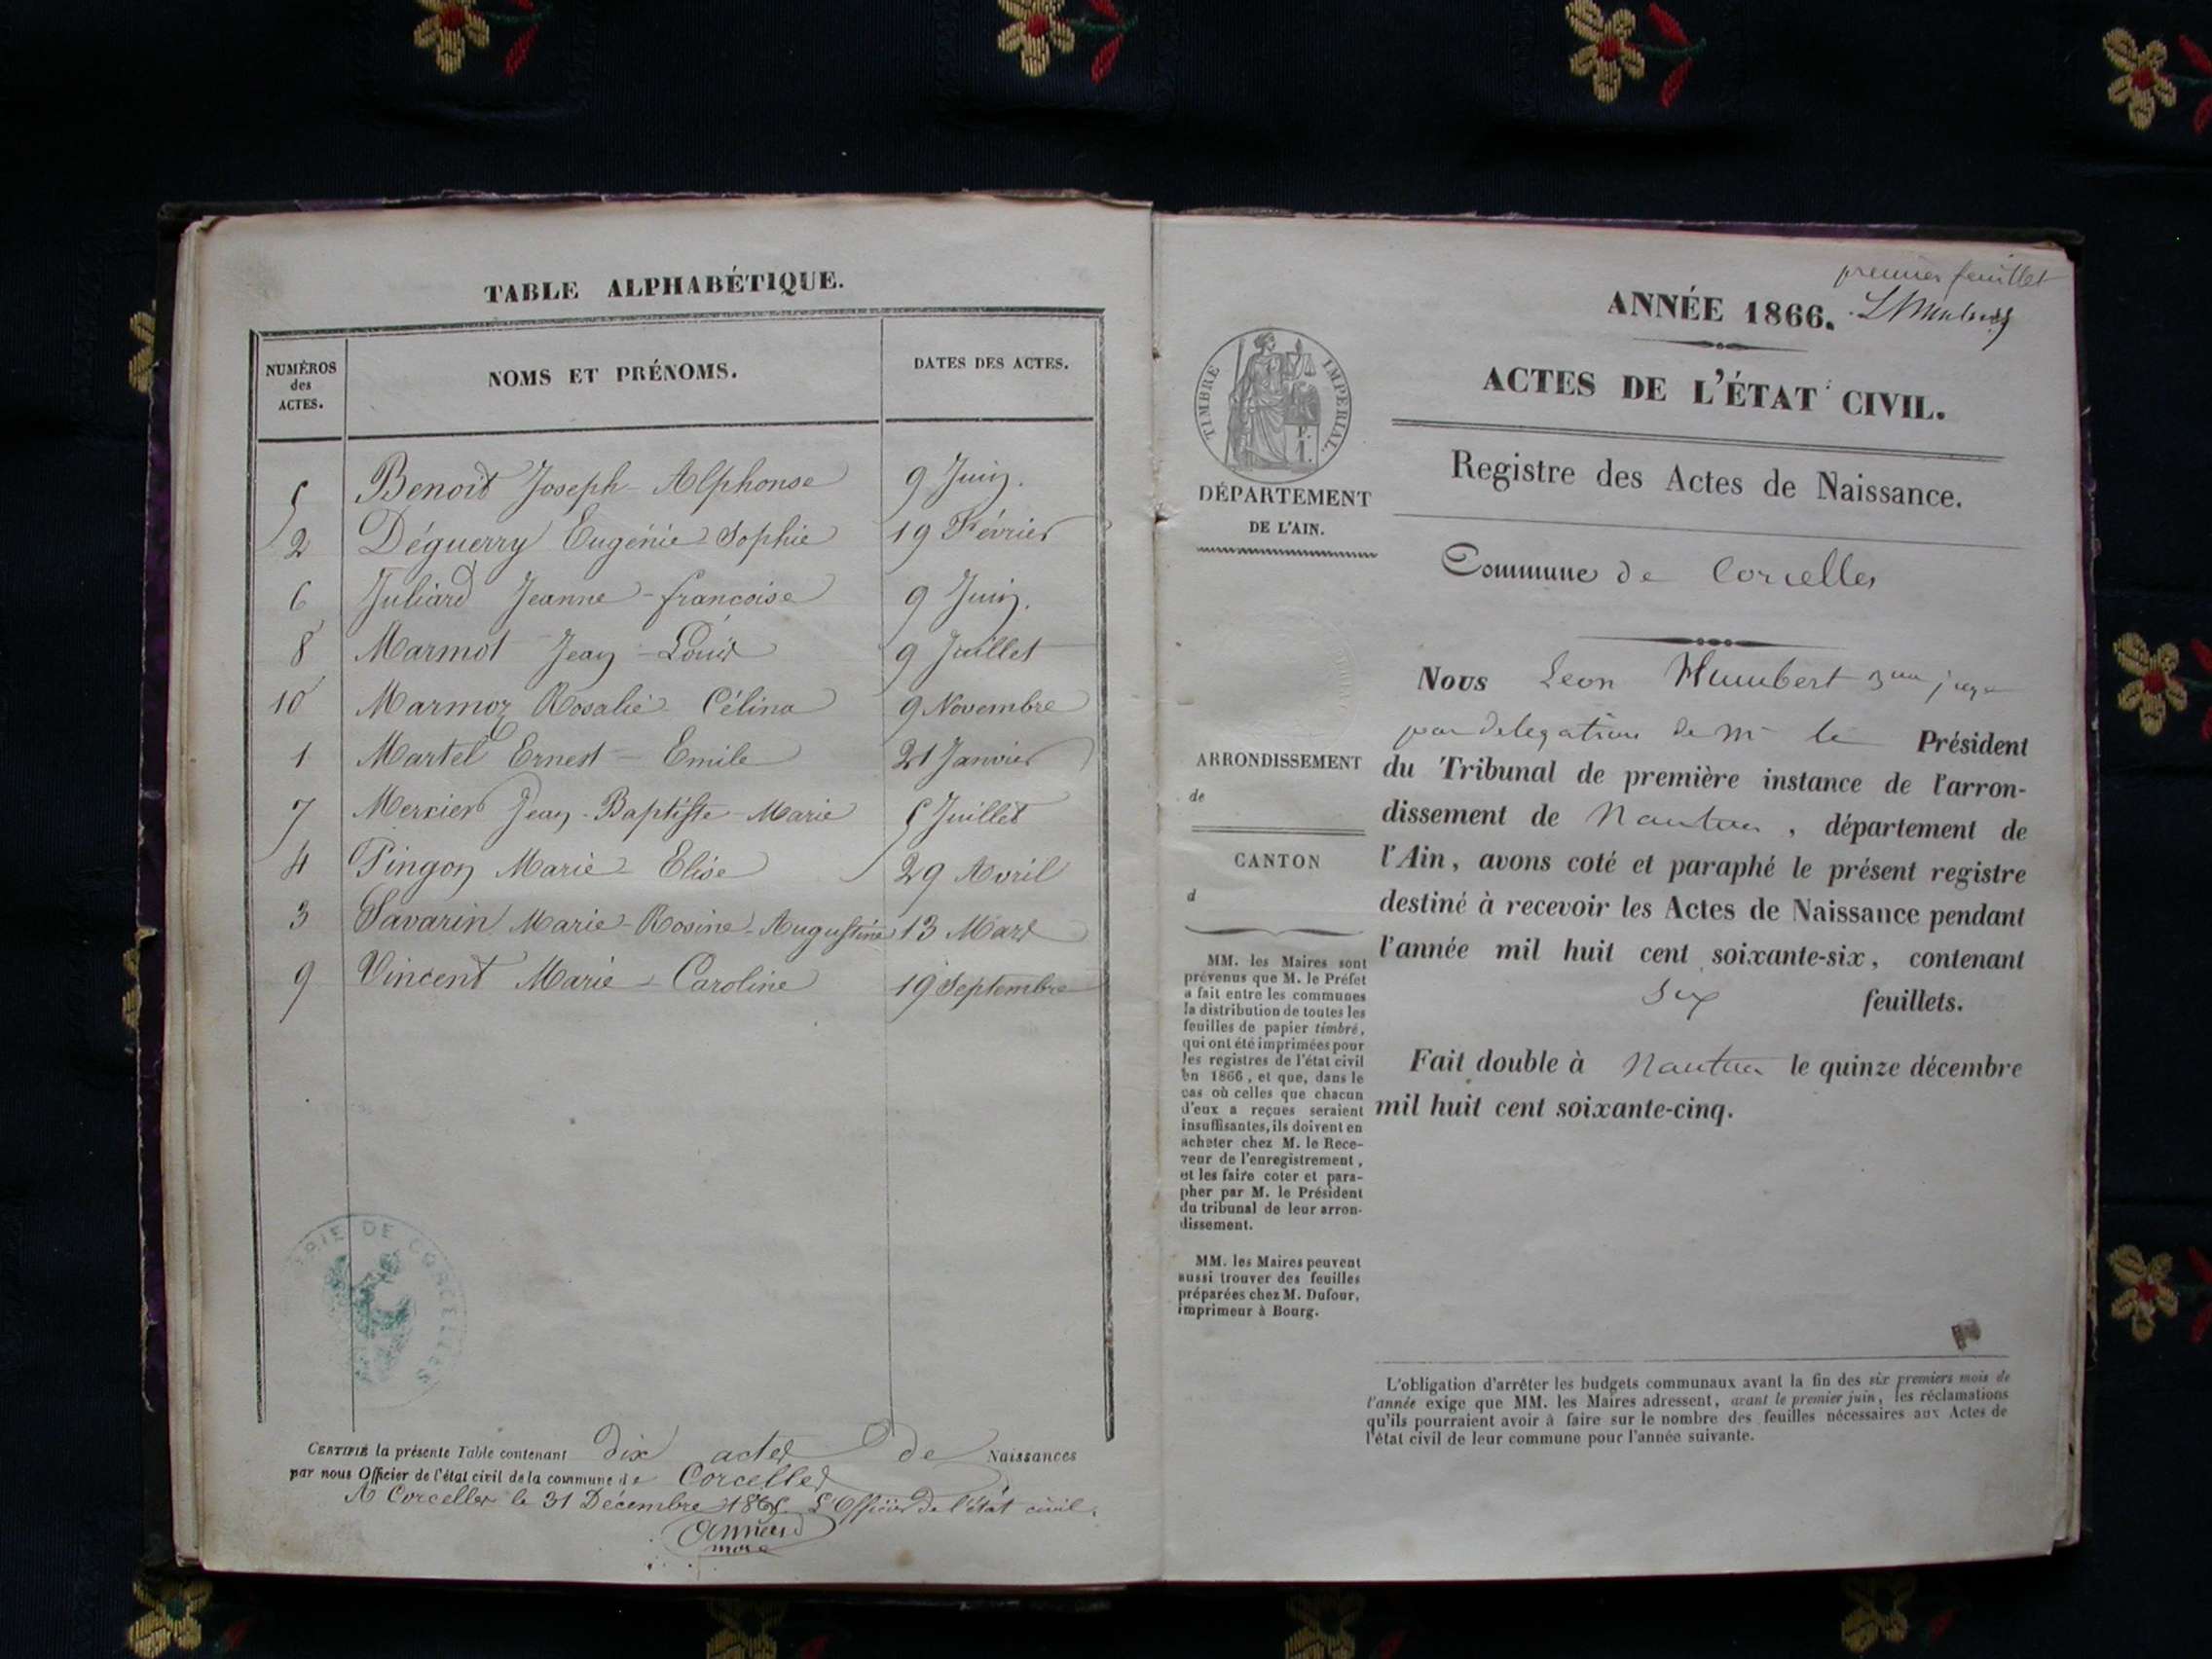 TABLE ALPHABÉTIQUE.
NUMÉROS des ACTES.
NOMS ET PRÉNOMS.
DATES DES ACTES.
5 Benoit Joseph-Alphonse 9 Juin.
2 Déguerry Eugénie-Sophie 19 Février
6 Juliard Jeanne-françoise 9 Juin.
8 Marmot Jean-Louis 9 Juillet
10 Marmoz Rosalie Célina 9 Novembre
1 Martel Ernest-Emile 21 Janvier
7 Mercier Jean-Baptiste-Marie 5 Juillet
4 Pingon Marie-Elise 29 Avril
3 Savarin Marie-Rosine-Augustine 13 Mars
9 Vincent Marie-Caroline 19 Septembre
MAIRIE DE CORCELLES
CERTIFIÉ la présente Table contenant dix actes de Naissances
par nous Officier de l'état civil de la commune de Corcelles
A Corcelles le 31 Décembre 1865 L'Officier de l'état civil.
premier feuillet
ANNÉE 1866.
ACTES DE L'ÉTAT CIVIL.
TIMBRE IMPÉRIAL.
DÉPARTEMENT
DE L'AIN.
Registre des Actes de Naissance.
Commune de Corcelles
Nous Leon Humbert juge
par delegation de Mr le Président
du Tribunal de première instance de l'arron-
dissement de Nantua, département de
l'Ain, avons coté et paraphé le présent registre
destiné à recevoir les Actes de Naissance pendant
l'année mil huit cent soixante-six, contenant
six feuillets.
Fait double à Nantua le quinze décembre
mil huit cent soixante-cinq.
ARRONDISSEMENT
de
CANTON
d
MM. les Maires sont
prévenus que M. le Préfet
a fait entre les communes
la distribution de toutes les
feuilles de papier timbré,
qui ont été imprimées pour
les registres de l'état civil
en 1866, et que, dans le
cas où celles que chacun
d'eux a reçues seraient
insuffisantes, ils doivent en
acheter chez M. le Rece-
veur de l'enregistrement,
et les faire coter et para-
pher par M. le Président
du tribunal de leur arron-
dissement.
MM. les Maires peuvent
aussi trouver des feuilles
préparées chez M. Dufour,
imprimeur à Bourg.
L'obligation d'arrêter les budgets communaux avant la fin des six premiers mois de
l'année exige que MM. les Maires adressent, avant le premier juin, les réclamations
qu'ils pourraient avoir à faire sur le nombre des feuilles nécessaires aux Actes de
l'état civil de leur commune pour l'année suivante.